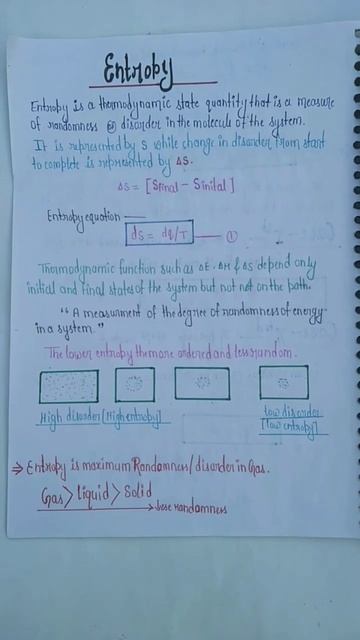 Entropy
Entropy is a thermodynamic state quantity that is a measure
of randomness or disorder in the molecule of the system.
It is represented by S while change in disorder from start
to complete is represented by ΔS.
ΔS = [Sfinal - Sinital]
Entropy equation —
dS = dq/T — ①
Thermodynamic function such as ΔE, ΔH & ΔS depend only
initial and final states of the system but not not on the path.
"A measurment of the degree of randomness of energy
in a system."
The lower entropy the more ordered and less random.
High disorder [High entropy]
low disorder
[low entropy]
⇒ Entropy is maximum Randomness/disorder in Gas.
Gas > liquid > Solid
→ randomness